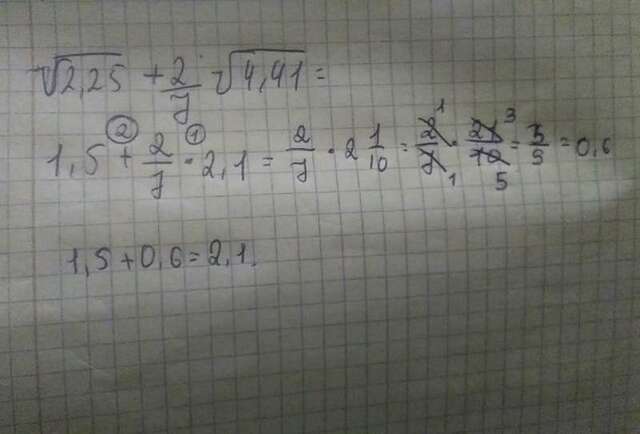 √2,25 + 2/7 √4,41 =
1,5 +② 2/7 ·① 2,1 = 2/7 · 2 1/10 = 2/7 1 1 · 21/10 3 5 = 3/5 = 0,6
1,5 + 0,6 = 2,1.